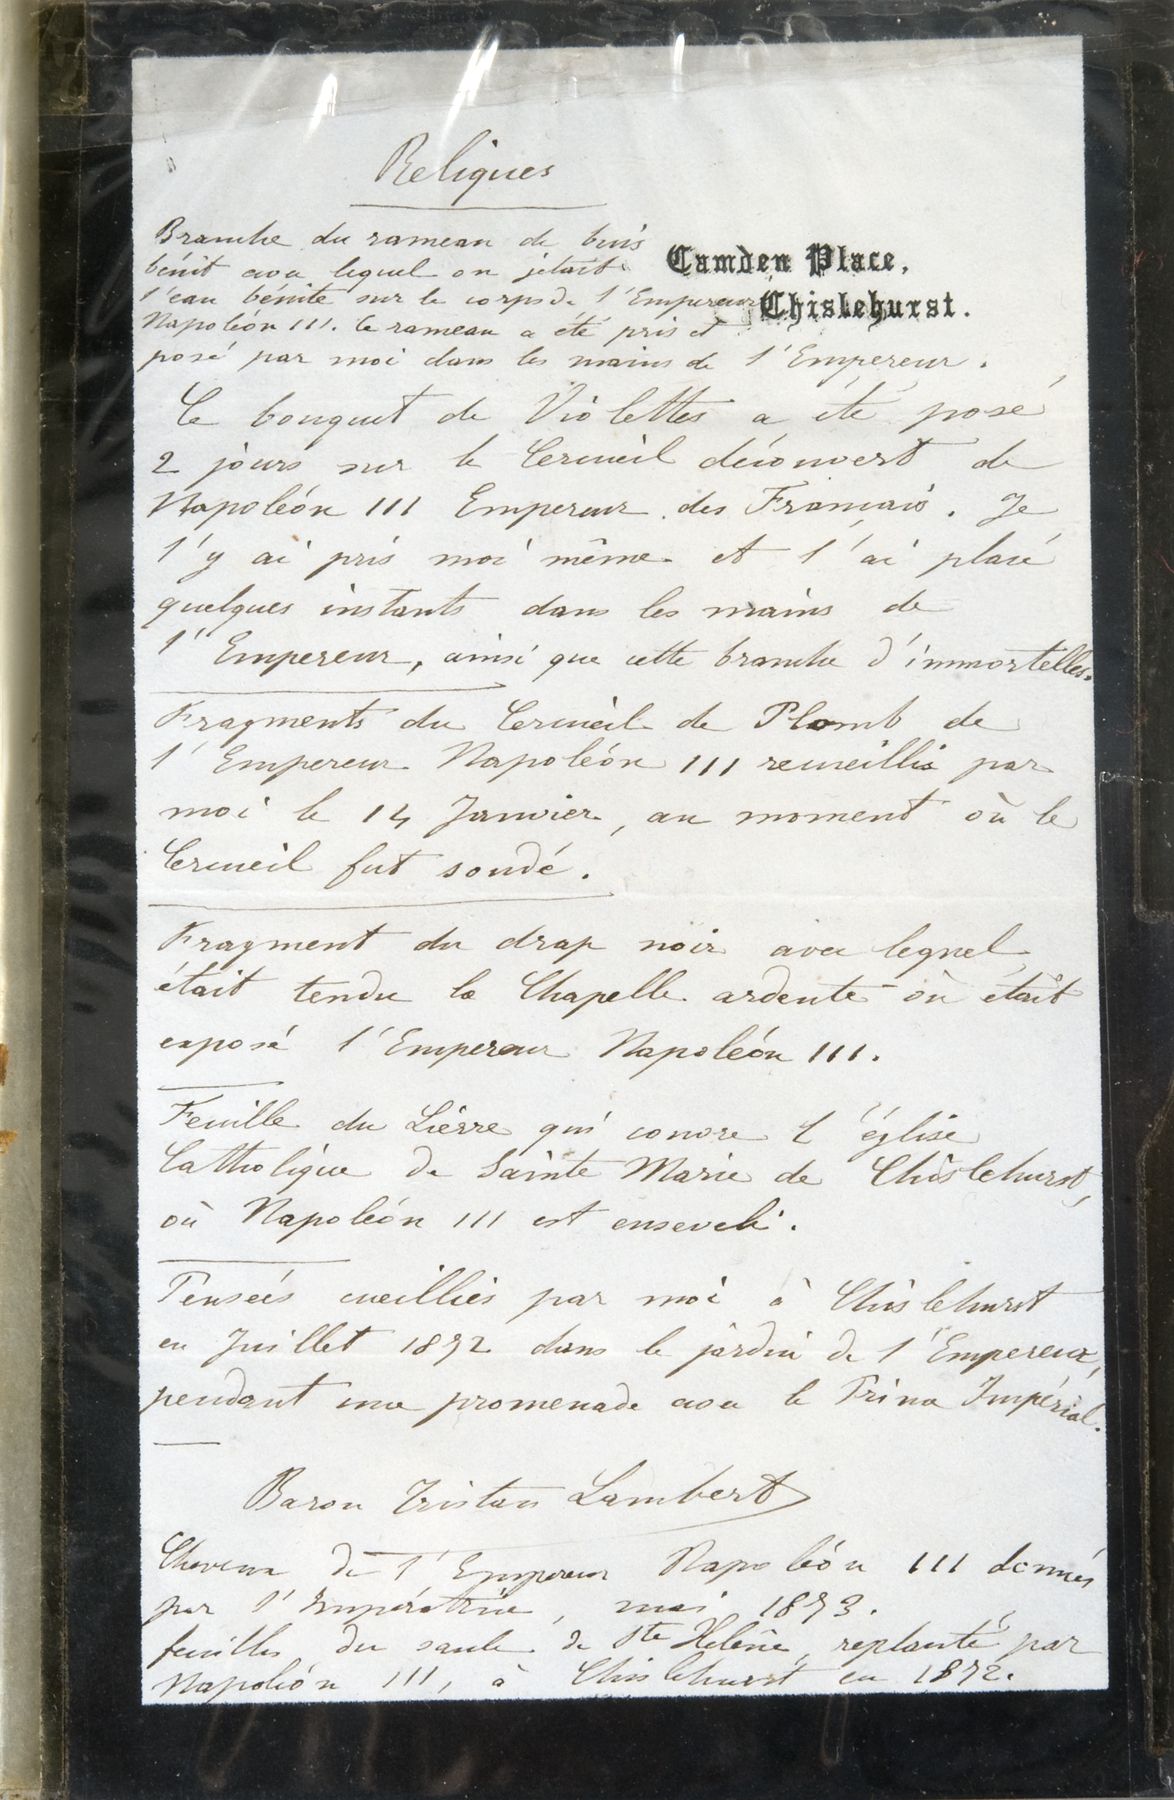 Reliques
Branche du rameau de buis
bénit avec lequel on jetait
l'eau bénite sur le corps de l'Empereur
Camden Place,
Chislehurst.
Napoléon III. le rameau a été pris et
posé par moi dans les mains de l'Empereur.
Ce bouquet de Violettes a été posé
2 jours sur le Cercueil découvert de
Napoléon III Empereur des Français. Je
l'y ai pris moi même et l'ai placé
quelques instants dans les mains de
l'Empereur, ainsi que cette branche d'immortelles.
Fragments du Cercueil de Plomb de
l'Empereur Napoléon III recueillis par
moi le 14 Janvier, au moment où le
Cercueil fut soudé.
Fragment du drap noir avec lequel
était tendu la Chapelle ardente où était
exposé l'Empereur Napoléon III.
Feuille du Lierre qui decore l'église
Catholique de Sainte Marie de Chislehurst,
où Napoléon III est enseveli.
Pensées cueillies par moi à Chislehurst
en Juillet 1872 dans le jardin de l'Empereur,
pendant une promenade avec le Prince Impérial.
Baron Tristan Lambert
Cheveux de l'Empereur Napoléon III donnés
par l'Impératrice, mai 1873.
feuilles du saule de Ste Hélène, replanté par
Napoléon III, à Chislehurst en 1872.